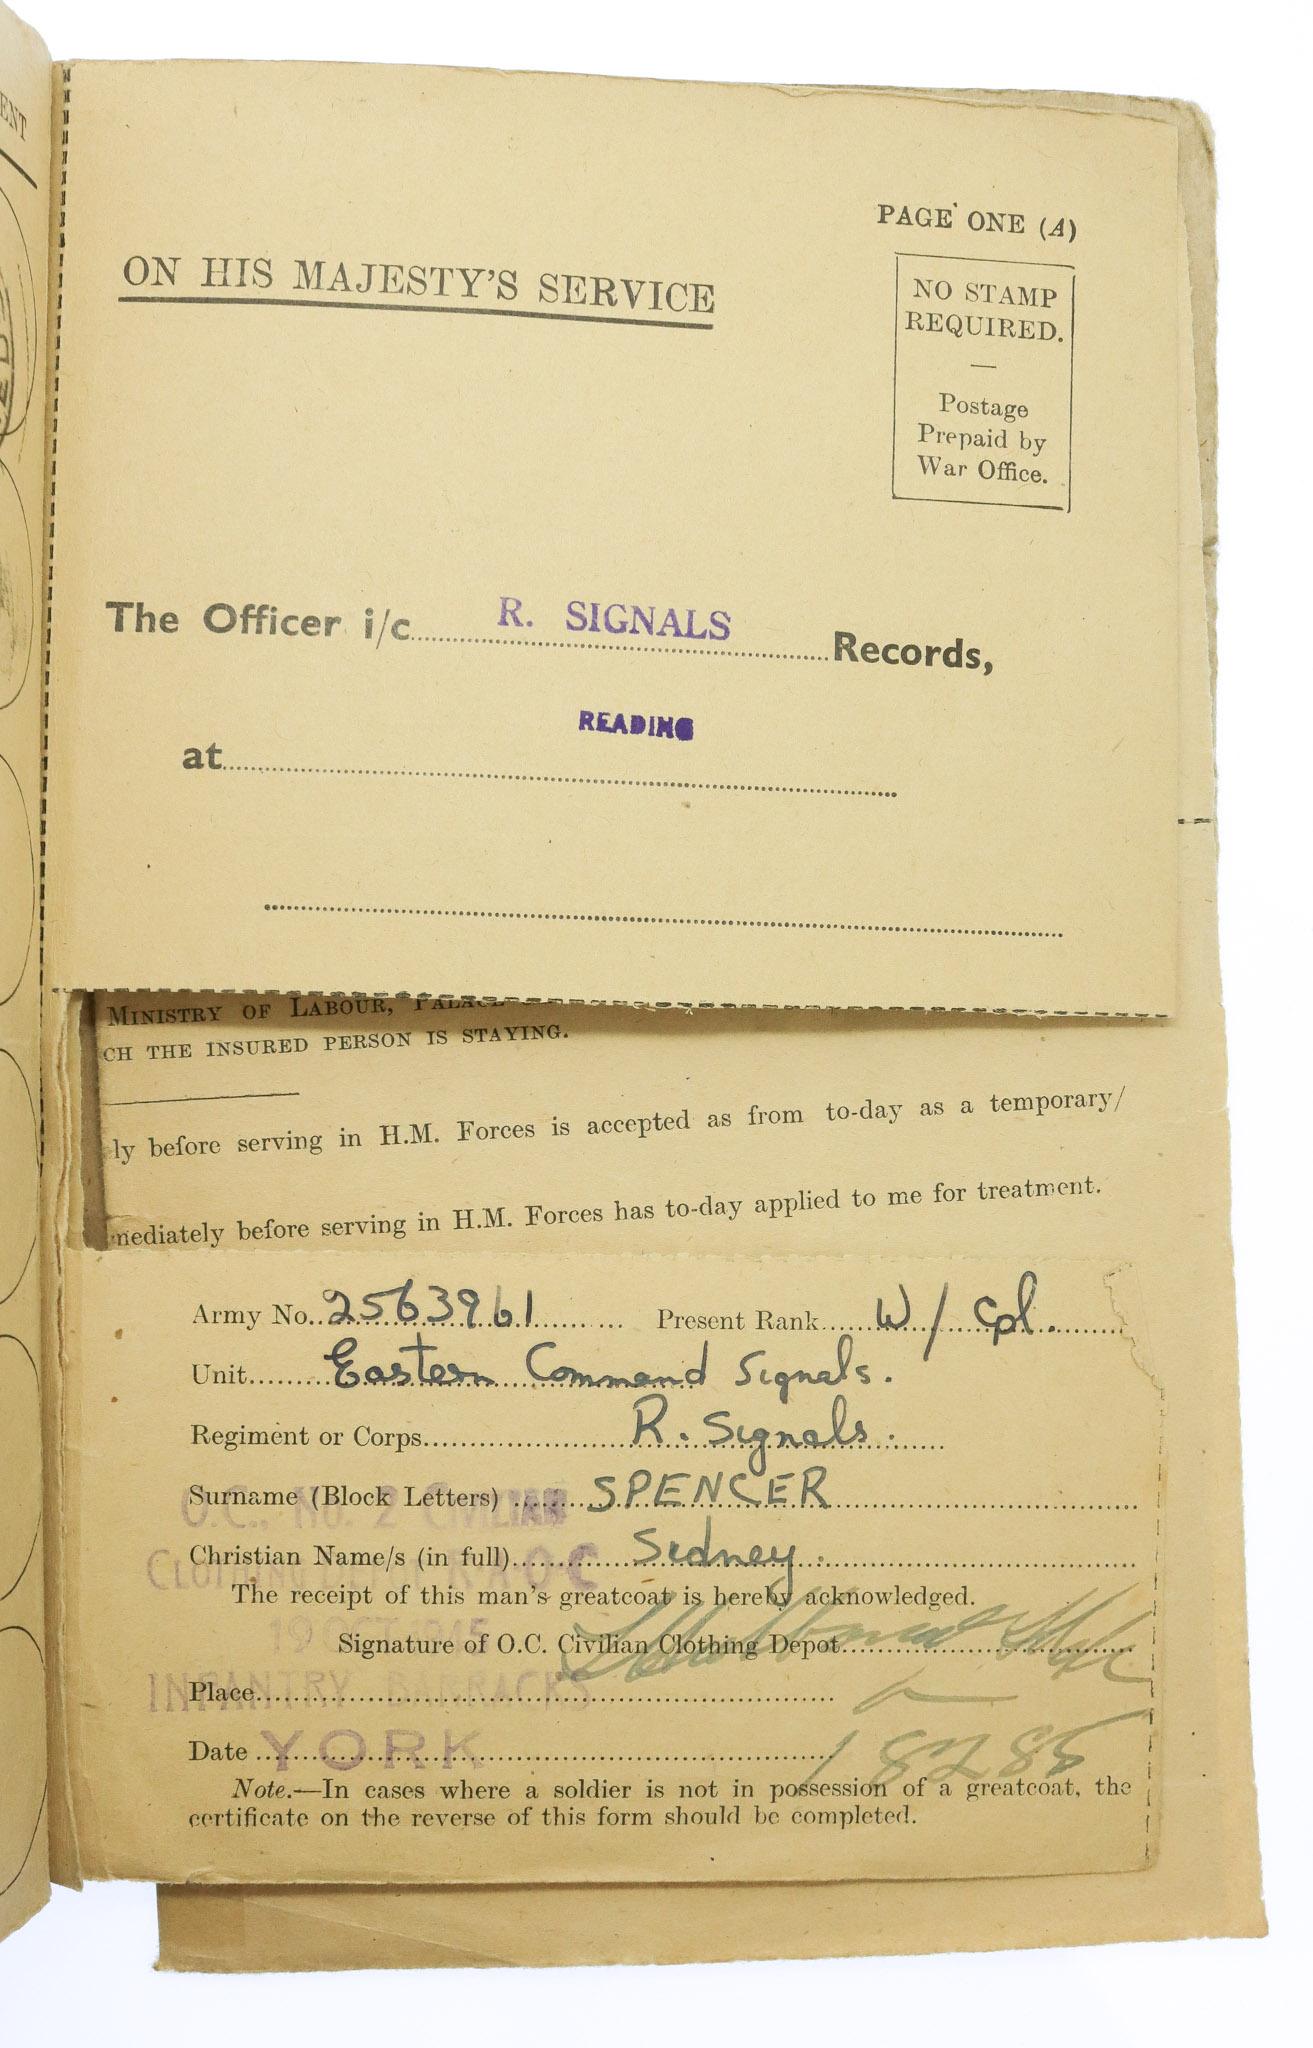 ENT
PAGE ONE (A)
ON HIS MAJESTY'S SERVICE
NO STAMP
REQUIRED.
—
Postage
Prepaid by
War Office.
The Officer i/c R. SIGNALS Records,
READING
at
MINISTRY OF LABOUR, PALACE
CH THE INSURED PERSON IS STAYING.
ly before serving in H.M. Forces is accepted as from to-day as a temporary/
mediately before serving in H.M. Forces has to-day applied to me for treatment.
Army No. 2563961 Present Rank W/Cpl.
Unit Eastern Command Signals.
Regiment or Corps R. Signals.
Surname (Block Letters) SPENCER
O.C., No. 2 CIVILIAN
Christian Name/s (in full) Sidney.
The receipt of this man's greatcoat is hereby acknowledged.
19 OCT 1945
Signature of O.C. Civilian Clothing Depot
INFANTRY BARRACKS
Place
Date YORK
Note.—In cases where a soldier is not in possession of a greatcoat, the
certificate on the reverse of this form should be completed.